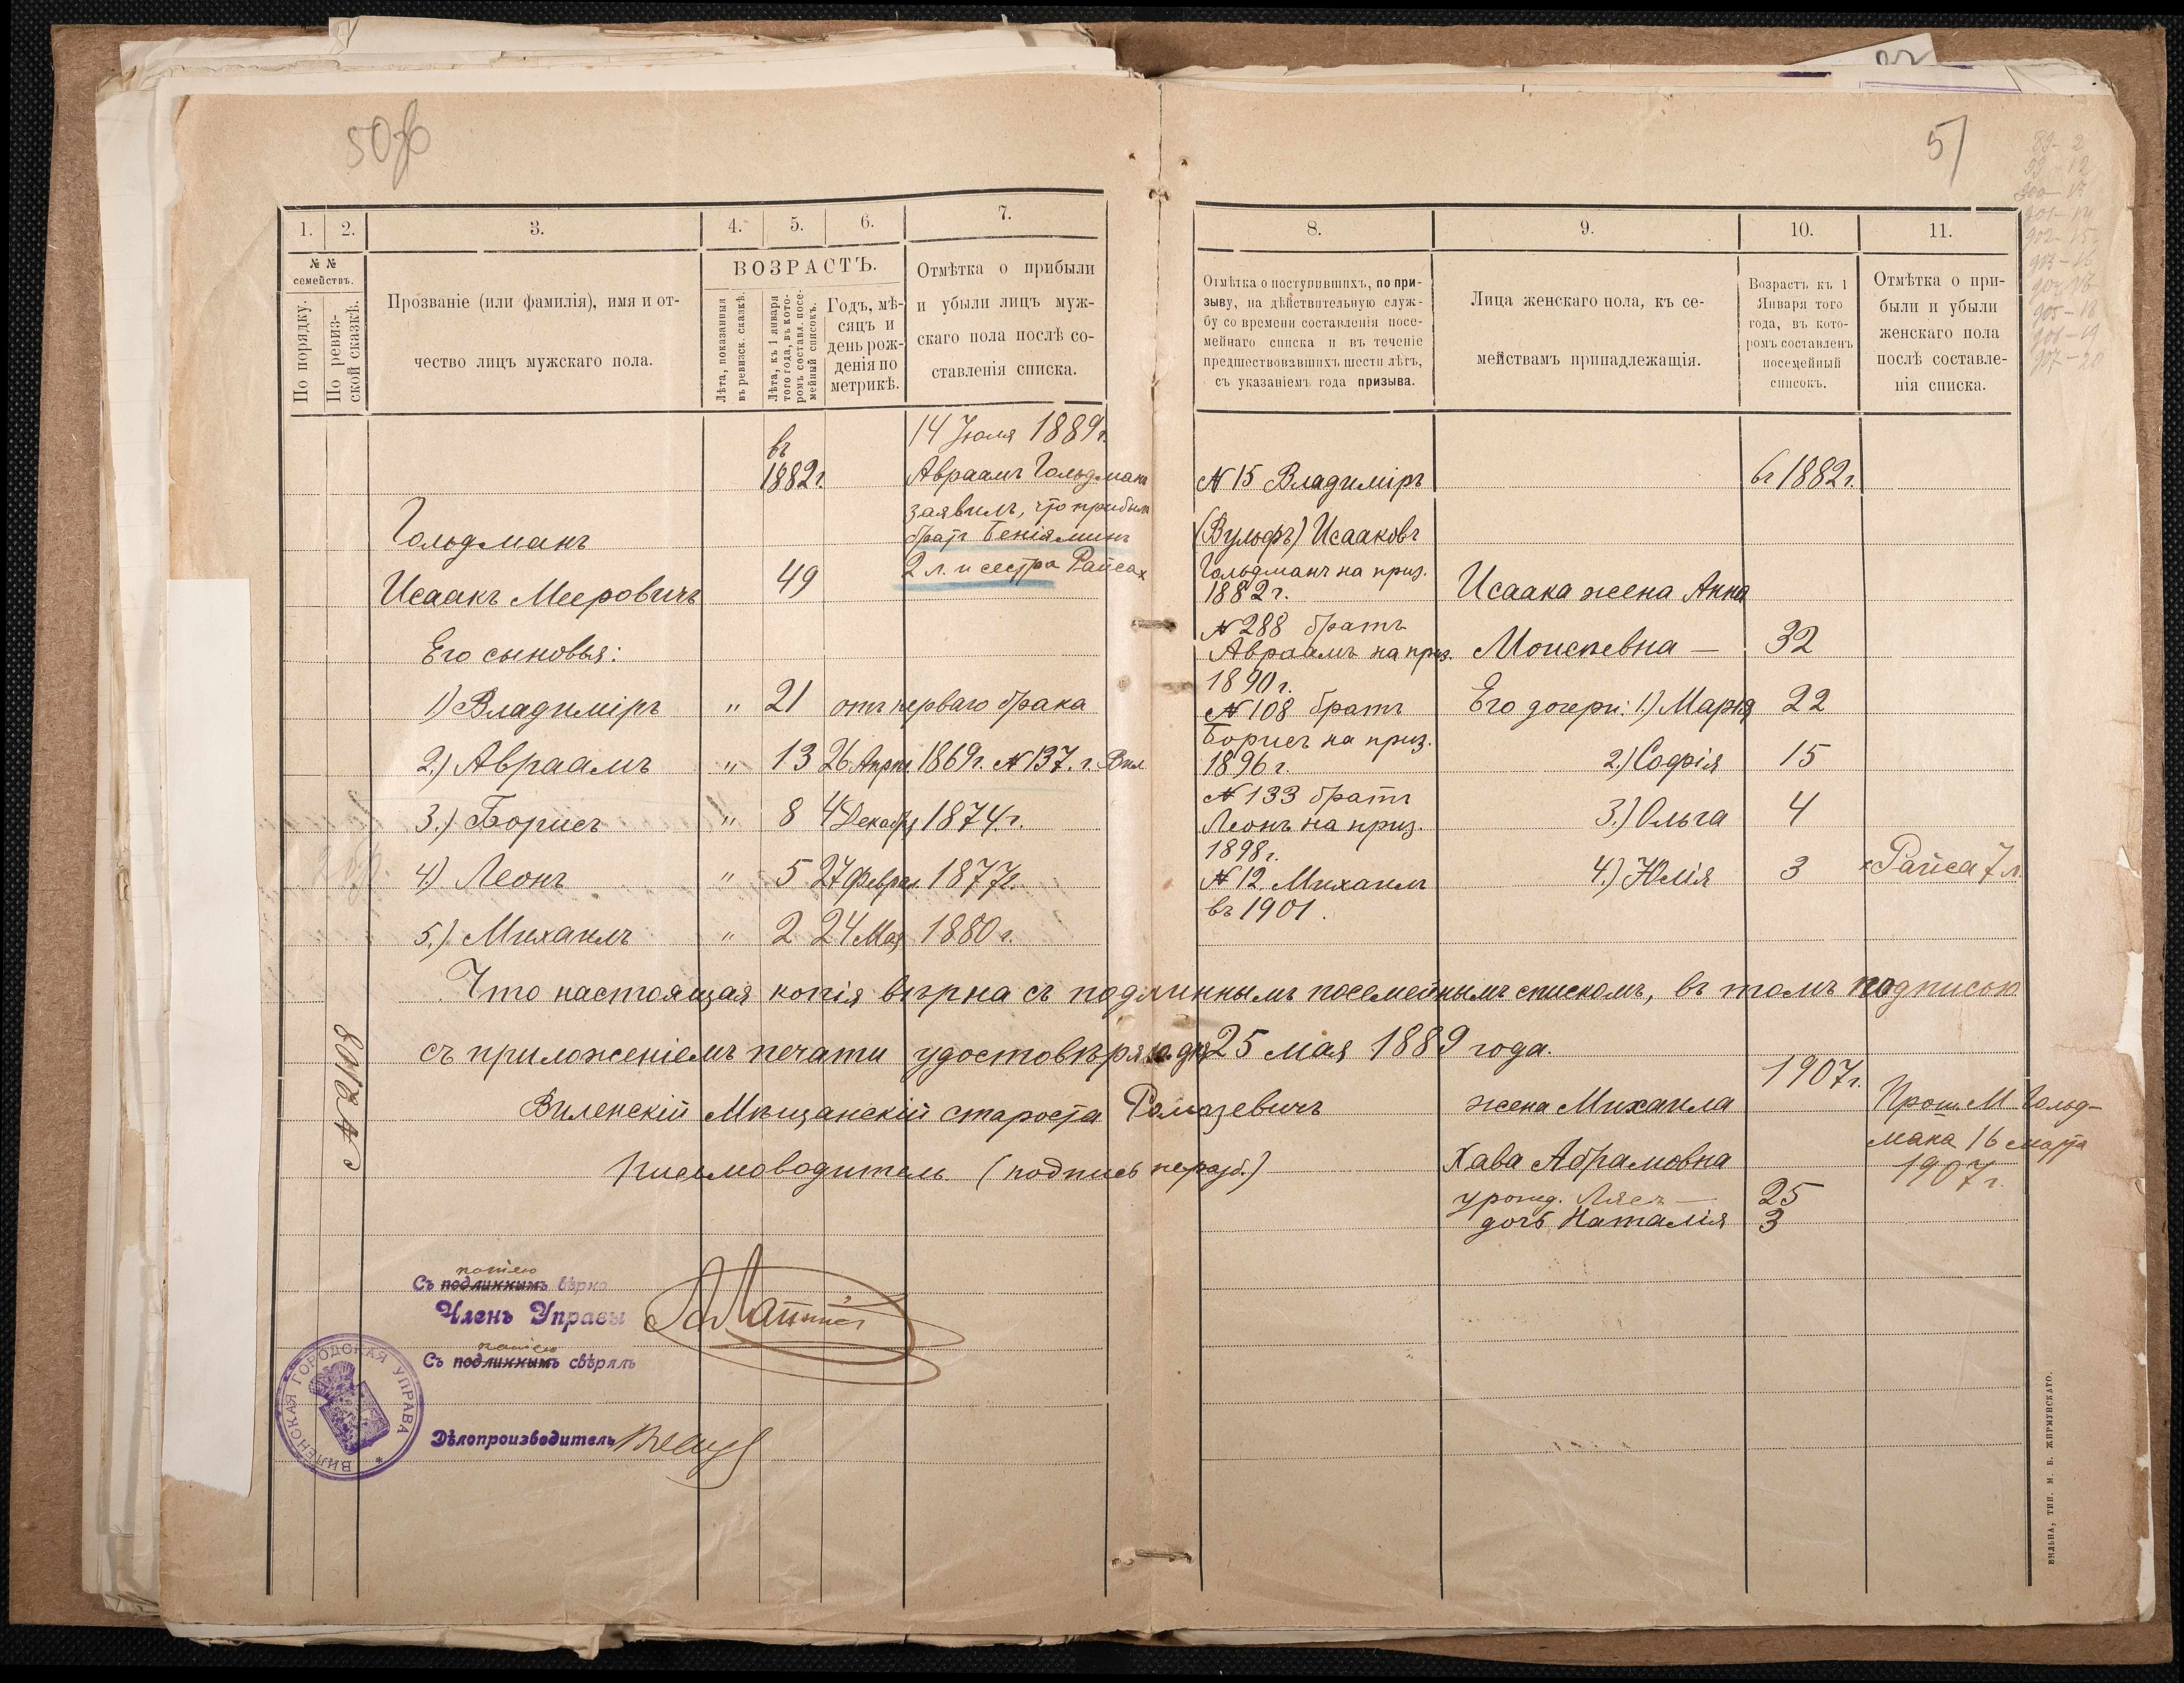 50об
51
89-2
99-12
900-13
901-14
902-15
903-16
904-17
905-18
906-19
907-20
1. 2. 3. 4. 5. 6. 7.
№ № семействъ.
По порядку.
По ревиз-
ской сказкѣ.
Прозваніе (или фамилія), имя и от-
чество лицъ мужскаго пола.
ВОЗРАСТЪ.
Лѣта, показанныя
въ ревизск. сказкѣ.
Лѣта, къ 1 января
того года, въ кото-
ромъ составл. посе-
мейный списокъ.
Годъ, мѣ-
сяцъ и
день рож-
денія по
метрикѣ.
Отмѣтка о прибыли
и убыли лицъ муж-
скаго пола послѣ со-
ставленія списка.
въ
1882г.
14 Іюля 1889г.
Авраамъ Гольдманъ
заявилъ, что прибыли
братъ Беніяминъ
2 л. и сестра Райса х
Гольдманъ
Исаакъ Мееровичъ 49
Его сыновья:
1) Владиміръ " 21 отъ перваго брака
2.) Авраамъ " 13 26 Апрѣл. 1869г. № 137. г. Вил
3.) Борисъ " 8 4 Декабря 1874.г.
4) Леонъ " 5 27 Феврал. 1877г.
5.) Михаилъ " 2 24 Мая 1880г.
8. 9. 10. 11.
Отмѣтка о поступившихъ, по при-
зыву, на дѣйствительную служ-
бу со времени составленія посе-
мейнаго списка и въ теченіе
предшествовавшихъ шести лѣтъ,
съ указаніемъ года призыва.
Лица женскаго пола, къ се-
мействамъ принадлежащія.
Возрастъ къ 1
Января того
года, въ кото-
ромъ составленъ
посемейный
списокъ.
Отмѣтка о при-
были и убыли
женскаго пола
послѣ составле-
нія списка.
№ 15 Владиміръ
(Вульфъ) Исааковъ
Гольдманъ на приз.
1882г.
№ 288 братъ
Авраамъ на приз.
1890г.
№ 108 братъ
Борисъ на приз.
1896г.
№ 133 братъ
Леонъ на приз.
1898г.
№ 12 Михаилъ
въ 1901.
въ 1882г.
Исаака жена Анна
Моисеевна — 32
Его дочери: 1.) Марія 22
2.) Софія 15
3.) Ольга 4
4.) Юлія 3 х Райса 7 л.
Что настоящая копія вѣрна съ подлиннымъ посемейнымъ спискомъ, въ томъ подписью
съ приложеніемъ печати удостовѣряю дня 25 мая 1889 года.
Виленскій Мѣщанскій староста Ромазевичъ
Письмоводитель (подпись неразб.)
№ 2108
1907г.
жена Михаила
Хава Абрамовна
урожд. Лясъ — 25
дочь Наталія 3
Прош. М. Гольд-
мана 16 марта
1907г.
копіею
Съ подлиннымъ вѣрно
Членъ Управы
копіею
Съ подлиннымъ свѣрялъ
Дѣлопроизводитель
ВИЛЕНСКАЯ ГОРОДСКАЯ УПРАВА *
ВИЛЬНА, ТИП. М. Б. ЖИРМУНСКАГО.